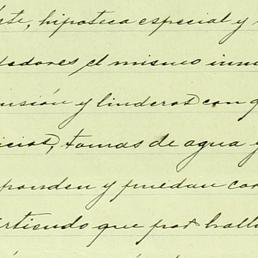 rte, hipoteca especial y
dadores el mismo inm
ensión y linderos con q
icios, tomas de agua y
ponden y puedan cor
irtiendo que por halla